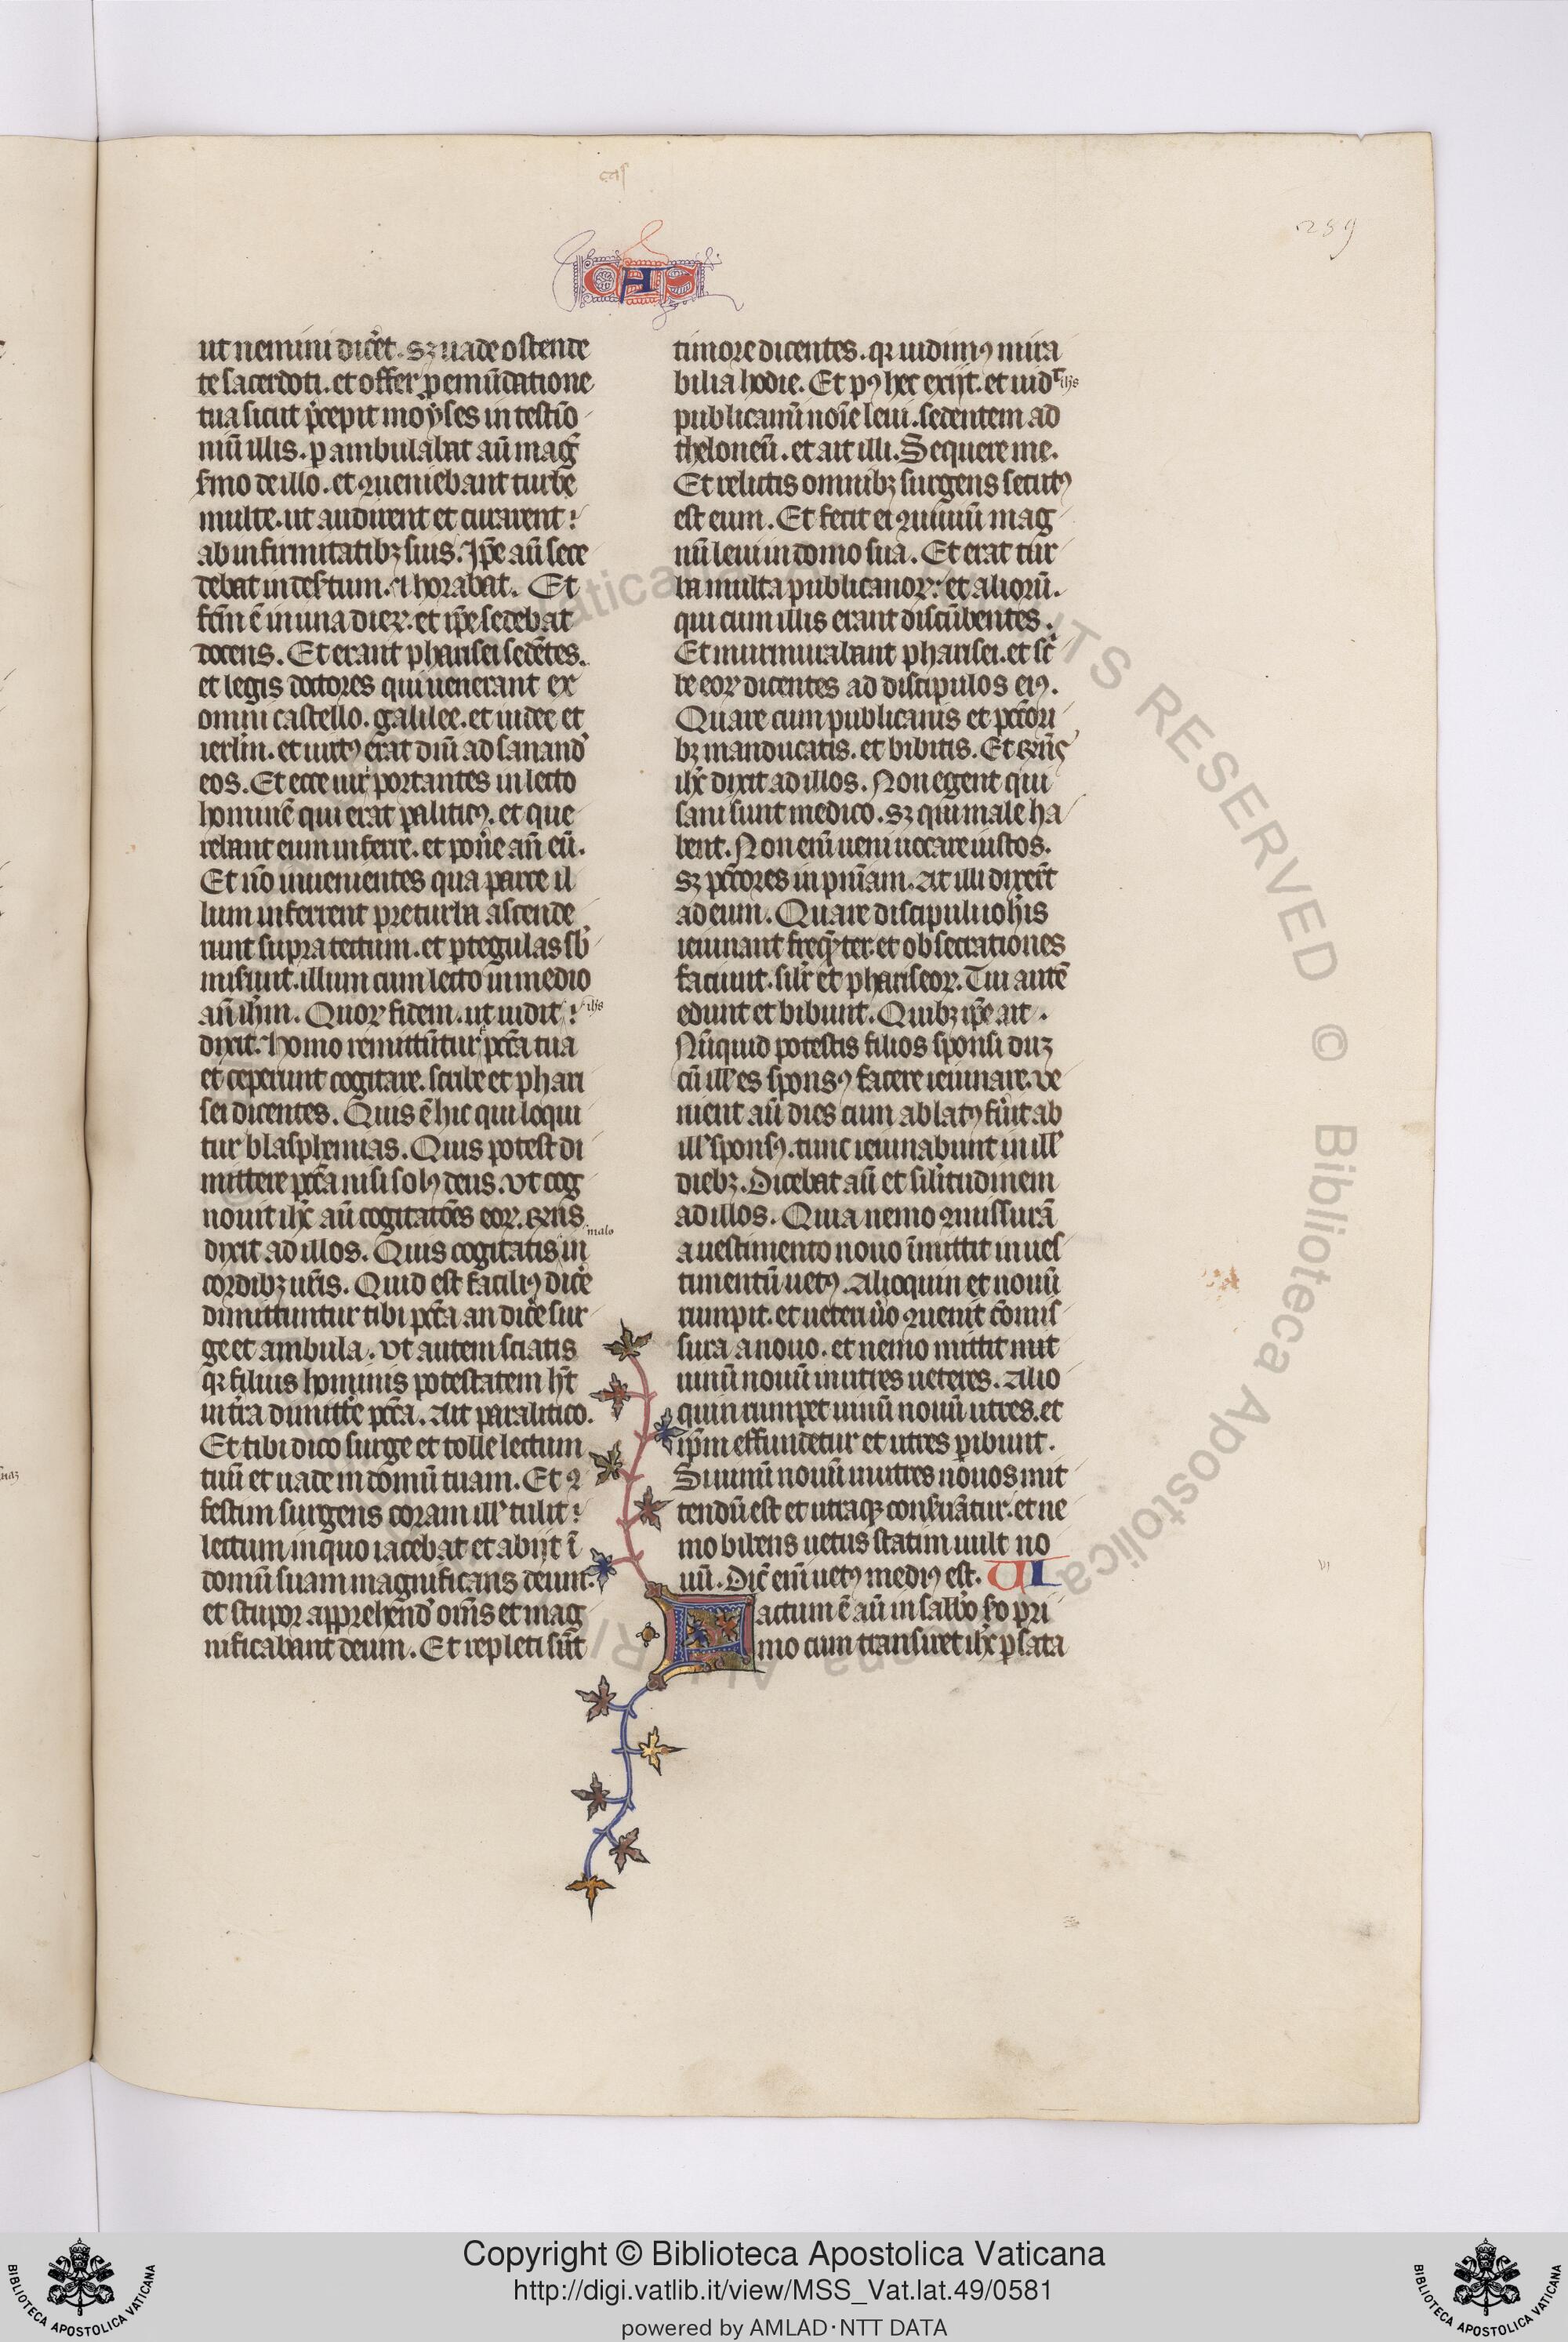 cas
289
CAS
ut nemini dic̄et. sꝫ uade ostende
te sacerdoti. et offer ꝓ emūdatione
tua sicut p̄cepit moyses in testīo
niū illis. ꝑambulabat aū maḡ
s̄mo de illo. et ꝯueniebant turbe
multe. ut audirent et curarent
ab infirmitatibꝫ suis. Ip̄e aū sece
debat in des̄tum. et horabat. Et
fc̄m ē in una dierꝝ. et ip̄e sedebat
docens. Et erant pharisei sedētes.
et legis doctores qui uenerant ex
omni castello. galilee. et iudee et
ierl̄m. et uirtꝰ erat dn̄i ad sanand̄
eos. Et ecce uir̄ portantes in lecto
hominē qui erat paliticꝰ. et que
rebant eum inferre. et pon̄e an̄ eū.
Et n̄o inuenientes qua parte il
lum inferrent pre turba ascende
runt supra tectum. et ꝑ tegulas sb̄
mis̄unt. illum cum lecto in medio
an̄ ih̄m. Quoꝝ fidem. ut uidit ih̄s
dixit. homo remittūtur pcc̄a tua
et ceperunt cogitare. scribe et phari
sei dicentes. Quis ē hic qui loqui
tur blasphemias. Quis potest di
mittere pcc̄a nisi solꝰ deus. Vt cog
nouit ih̄c aū cogitatōes eoꝝ. rn̄s
malo
dixit ad illos. Quis cogitatis in
cordibꝫ ur̄is. Quid est faciliꝰ dic̄e
dimittuntur tibi pcc̄a an dic̄e sur
ge et ambula. Vt autem sciatis
qꝛ filius hominis potestatem ht̄
in t̄ra dimitt̄e pcc̄a. Ait paralitico.
Et tibi dico surge et tolle lectum
tuū et uade in domū tuam. Et ꝯ
festim surgens coram ill̄ tulit
lectum in quo iacebat et abijt ī
domū suam magnificans deum.
et stupor apprehend̄ om̄s et mag
nificabant deum. Et repleti sūt
timore dicentes. qꝛ uidimꝰ mira
bilia hodie. Et pꝰ hec exijt. et uid̄ ih̄s
publicanū noīe leui. sedentem ad
theloneū. et ait illi. Sequere me.
Et relictis omnibꝫ surgens secutꝰ
est eum. Et fecit ei ꝯuiuiū mag
nū leui in domo sua. Et erat tur
ba multa publicanoꝝ. et alioꝝū.
qui cum illis erant discūbentes.
Et murmurabant pharisei. et sc̄i
be eoꝝ dicentes ad discipulos eiꝰ.
Quare cum publicanis et pcc̄ori
bꝫ manducatis. et bibitis. Et rn̄s
ih̄c dixit ad illos. Non egent qui
sani sunt medico. sꝫ qui male ha
bent. Non enī ueni uocare iustos.
sꝫ pcc̄ores in pn̄iam. At illi dixer̄t
ad eum. Quare discipuli ioh̄is
ieiunant freqn̄ter. et obsecrationes
faciunt. sil̄r et phariseoꝝ. Tui autē
edunt et bibunt. Quibꝫ ip̄e ait.
Nūquid potestis filios sponsi dūꝫ
cū ill̄ es sponsꝰ facere ieiunare. Ve
nient aū dies cum ablatꝰ fūit ab
ill̄ sponsꝰ. tunc ieiunabunt in ill̄
diebꝫ. Dicebat aū et sil̄itudinem
ad illos. Quia nemo ꝯmissurā
a uestimento nouo īmittit in ues
timentū uetꝰ. Alioquin et nouū
rumpit. et ueteri ūo ꝯuenit cōmis
sura a nouo. et nemo mittit mit
uinū nouū in utres ueteres. Alio
quin rumpet uinū nouū utres. et
ip̄m effundetur et utres ꝑibunt.
S uinū nouū in utres nouos mit
tendū est et utraqꝫ conseruātur. et ne
mo bibens uetus statim uult no
uū. Dic̄ enī uetꝰ mediꝰ est. VI
vi
Factum ē aū in sabb̄o sc̄do pri
mo cum transiret ih̄c ꝑ sata
Copyright © Biblioteca Apostolica Vaticana
http://digi.vatlib.it/view/MSS_Vat.lat.49/0581
powered by AMLAD·NTT DATA
BIBLIOTECA APOSTOLICA VATICANA
BIBLIOTECA APOSTOLICA VATICANA